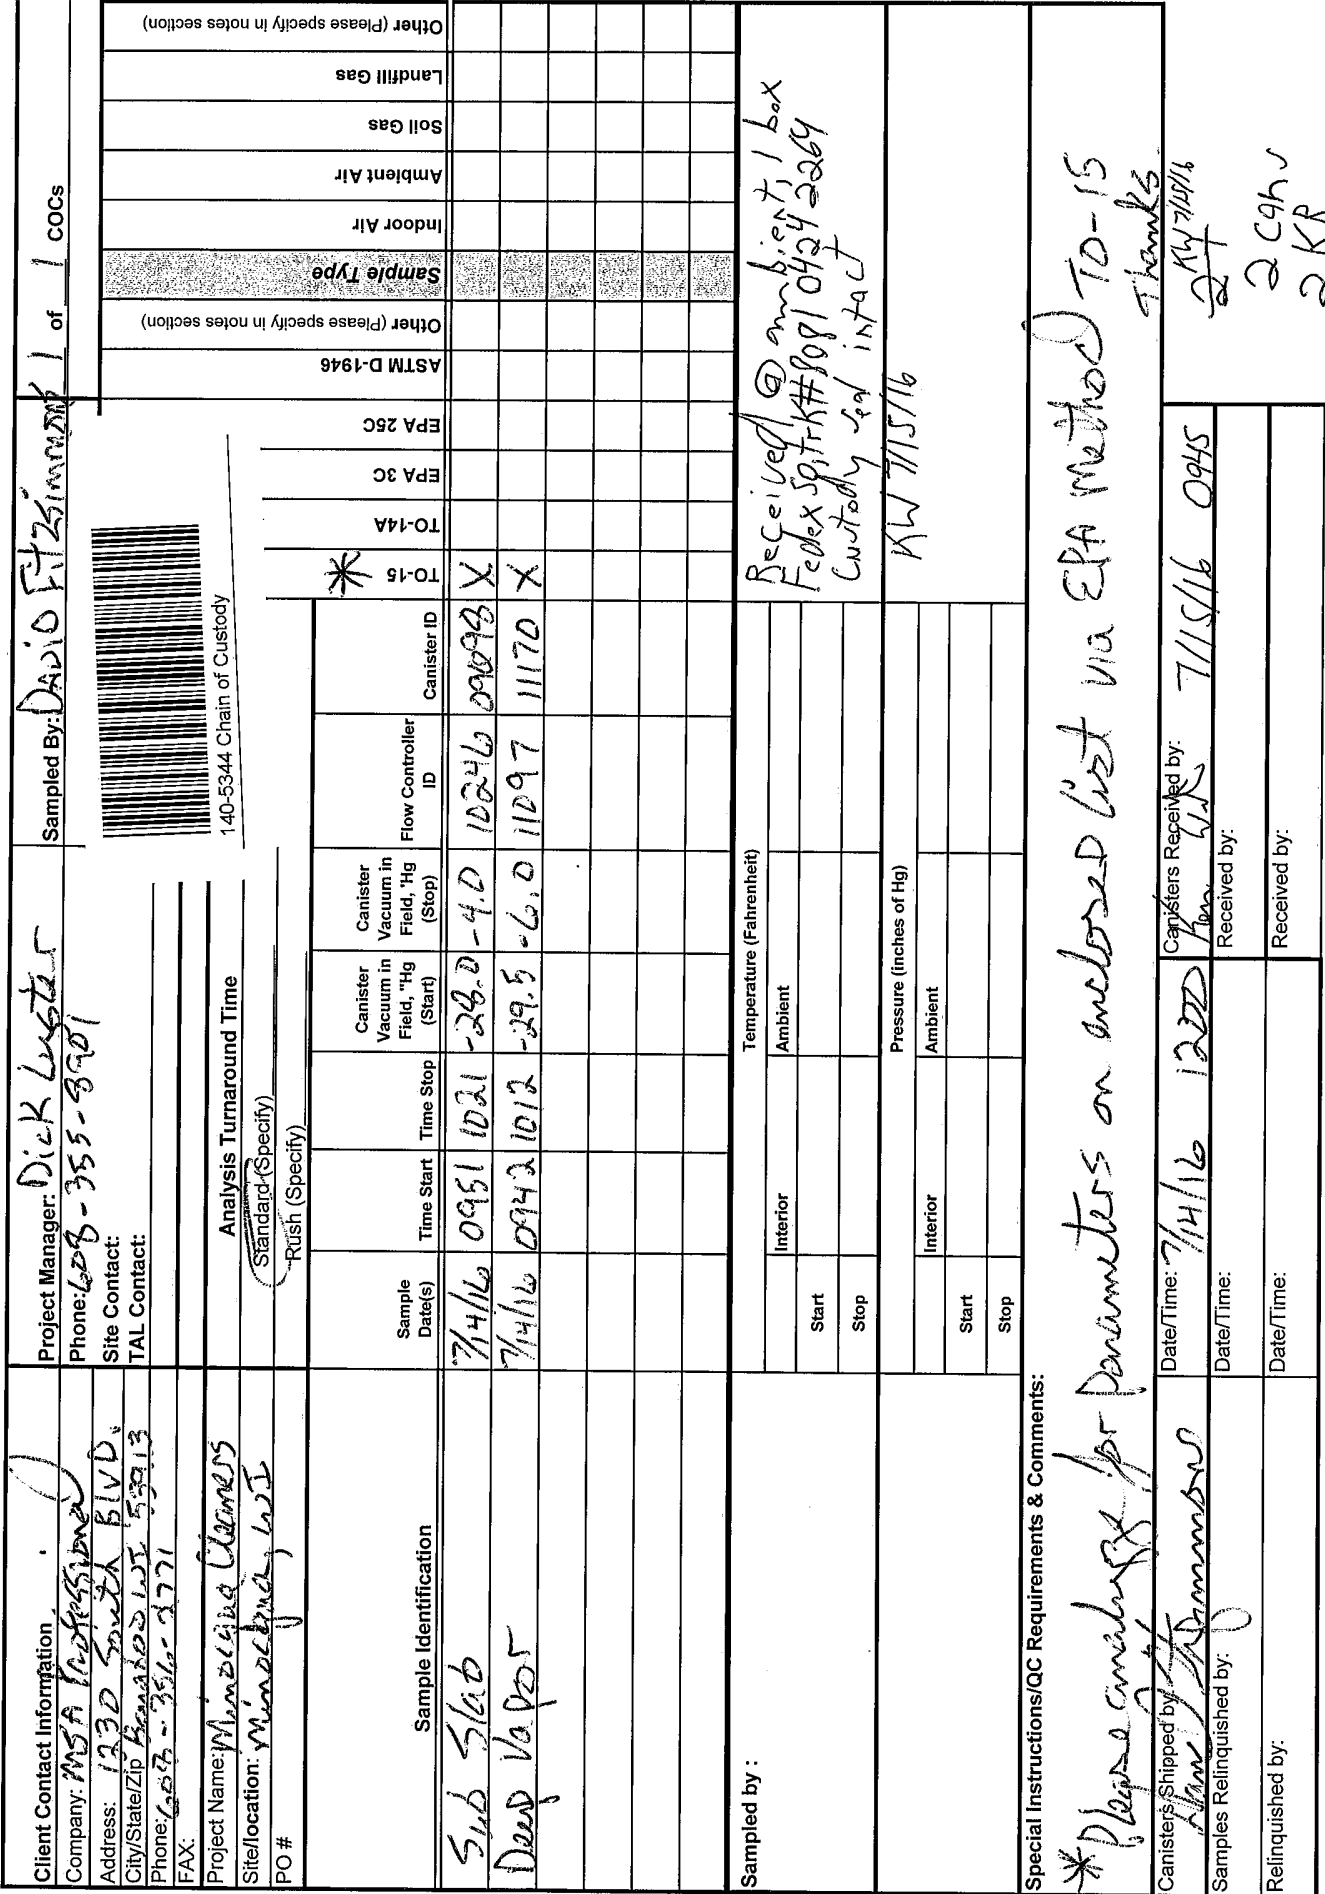 Client Contact Information
Company: MSA Professional
Address: 1230 South BLVD.
City/State/Zip Baraboo WI 53913
Phone: 608-356-2771
FAX:
Project Name: Minocqua Cleaners
Site/location: Minocqua, WI
PO #
Project Manager: Dick Luster
Phone: 608-355-8901
Site Contact:
TAL Contact:
Analysis Turnaround Time
Standard (Specify)
Rush (Specify)
Sampled By: DAVID FITZSIMMONS
1 of 1 COCs
140-5344 Chain of Custody
Sample Identification
Sample Date(s)
Time Start
Time Stop
Canister Vacuum in Field, "Hg (Start)
Canister Vacuum in Field, "Hg (Stop)
Flow Controller ID
Canister ID
* TO-15
TO-14A
EPA 3C
EPA 25C
ASTM D-1946
Other (Please specify in notes section)
Sample Type
Indoor Air
Ambient Air
Soil Gas
Landfill Gas
Other (Please specify in notes section)
Sub Slab 7/14/16 0951 1021 -28.0 -4.0 10246 X
Deep Vapor 7/14/16 0942 1012 -29.5 -6.0 11097 11170 X
Sampled by :
Temperature (Fahrenheit)
Interior
Ambient
Start
Stop
Pressure (inches of Hg)
Interior
Ambient
Start
Stop
Received @ ambient, 1 box
Fedex SO, trk# 8081 0424 2264
Custody seal intact
KW 7/15/16
Special Instructions/QC Requirements & Comments:
* Please analyze for parameters on enclosed list via EPA Method TO-15
Thanks
Canisters Shipped by:
Date/Time: 7/14/16 1200
Canisters Received by:
7/15/16 0945
Samples Relinquished by:
Date/Time:
Received by:
Relinquished by:
Date/Time:
Received by:
KW 7/15/16
2 can
2 KR